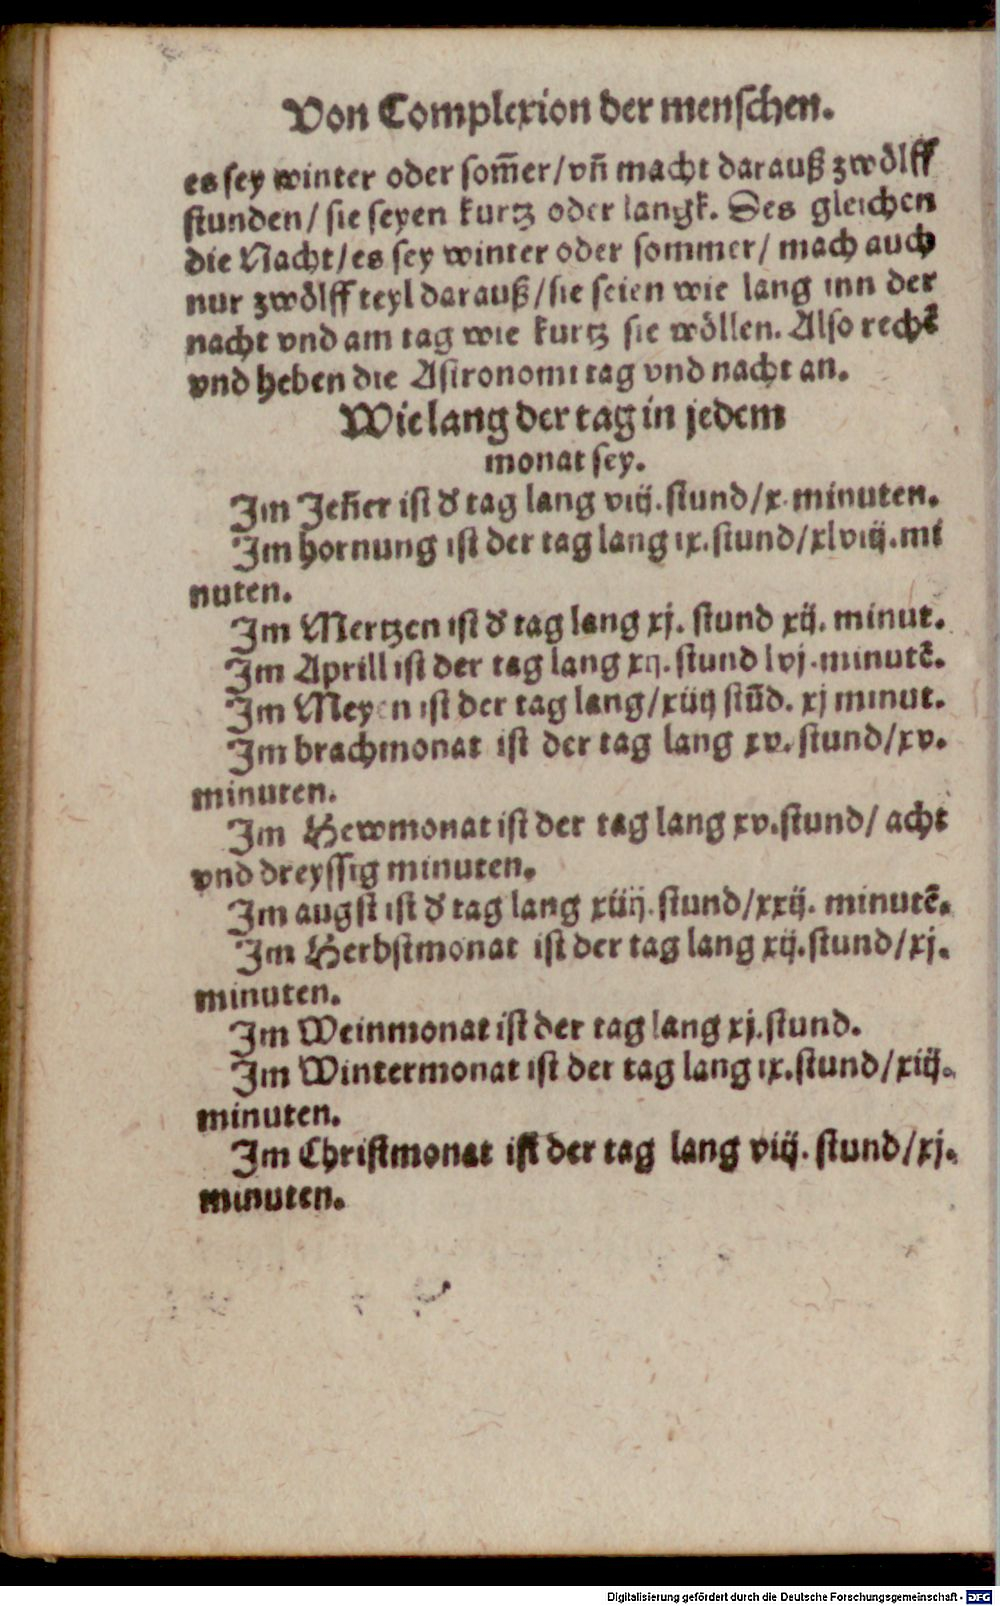 Von Complexion der menschen.
es sey winter oder som̃er/vñ macht darauß zwoͤlff
stunden/ sie seyen kurtz oder langk. Des gleichen
die Nacht/es sey winter oder sommer/ mach auch
nur zwoͤlff teyl darauß/sie seien wie lang inn der
nacht vnd am tag wie kurtz sie woͤllen. Also rechẽ
vnd heben die Astronomi tag vnd nacht an.
Wie lang der tag in jedem
monat sey.
Im Jeñer ist d' tag lang viij. stund/x. minuten.
Im hornung ist der tag lang ix. stund/xlviij. mi
nuten.
Im Mertzen ist d' tag lang xj. stund xij. minut.
Im Aprill ist der tag lang xij. stund lvj. minutẽ.
Im Meyen ist der tag lang/xiiij stũd. xj minut.
Im brachmonat ist der tag lang xv. stund/xv.
minuten.
Im Hewmonat ist der tag lang xv. stund/ acht
vnd dreyssig minuten.
Im augst ist d' tag lang xiiij. stund/xxij. minutẽ.
Im Herbstmonat ist der tag lang xij. stund/xj.
minuten.
Im Weinmonat ist der tag lang xj. stund.
Im Wintermonat ist der tag lang ix. stund/xiij.
minuten.
Im Christmonat ist der tag lang viij. stund/xj.
minuten.
Digitalisierung gefördert durch die Deutsche Forschungsgemeinschaft - DFG